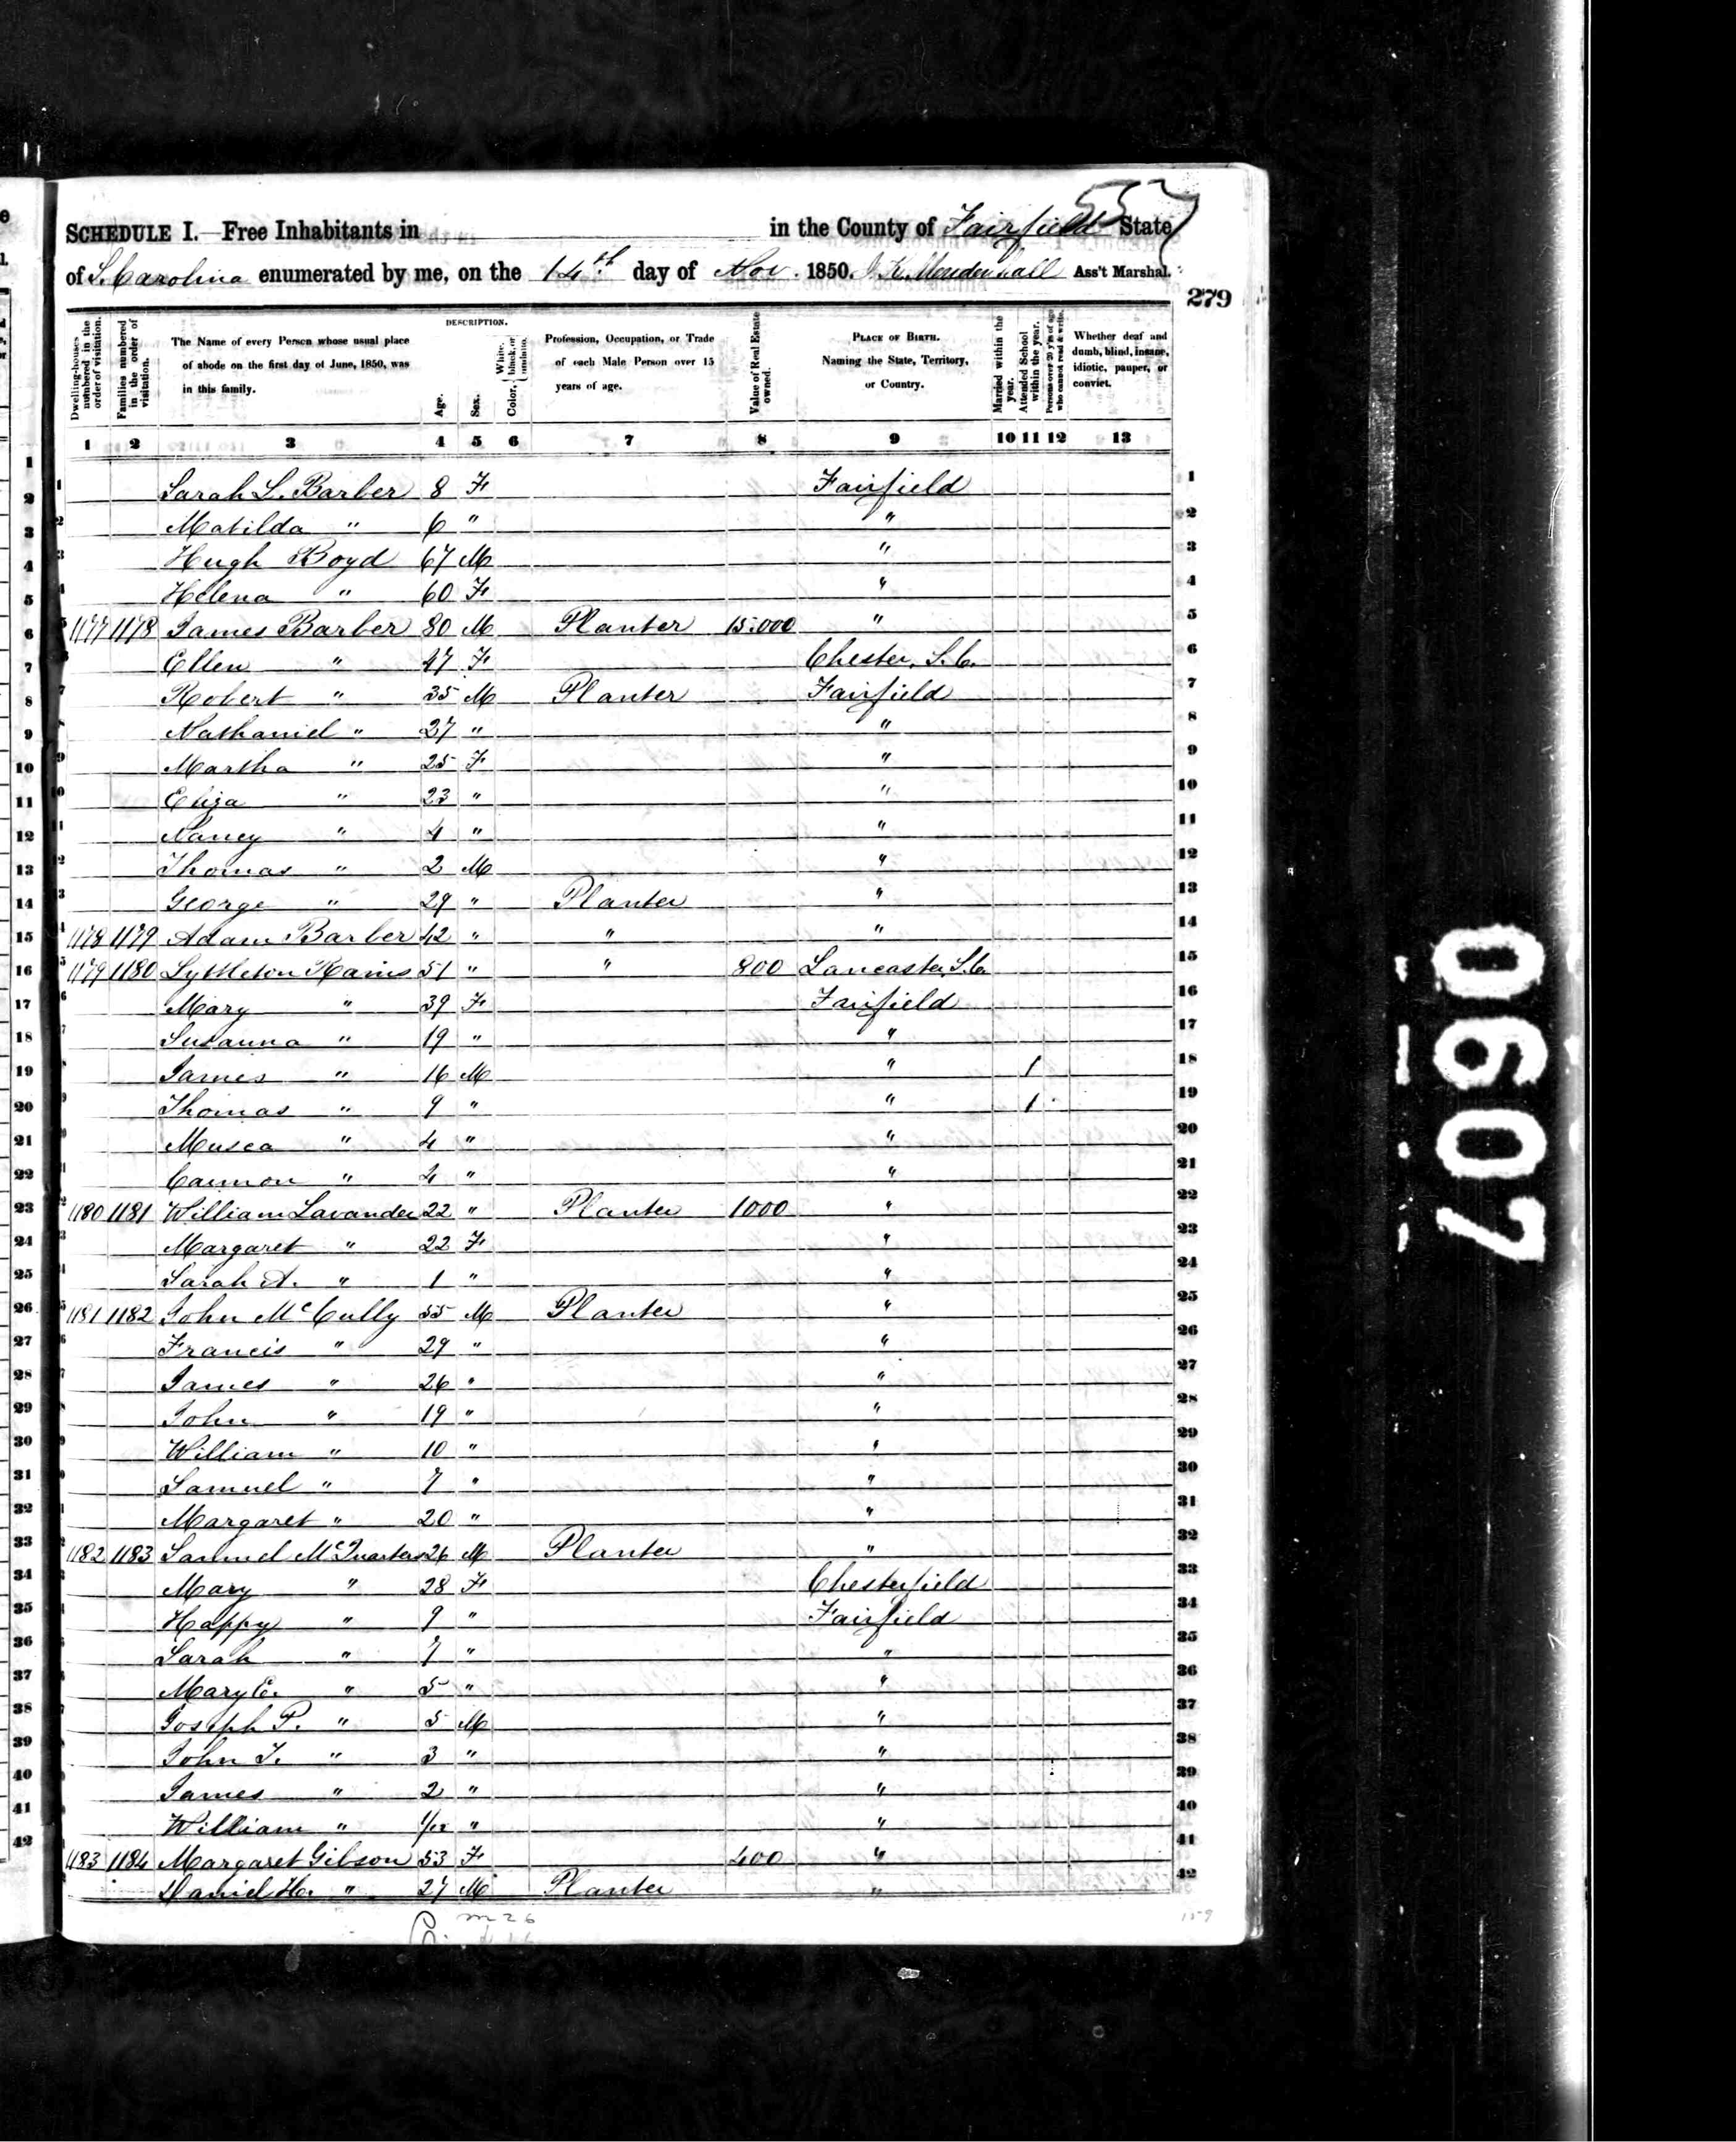 557
SCHEDULE I.—Free Inhabitants in in the County of Fairfield State
of S. Carolina enumerated by me, on the 14th day of Nov. 1850. Mendenhall Ass't Marshal.
279
Dwelling-houses numbered in the order of visitation.
Families numbered in the order of visitation.
The Name of every Person whose usual place of abode on the first day of June, 1850, was in this family.
DESCRIPTION.
Age.
Sex.
Color, White, black, or mulatto.
Profession, Occupation, or Trade of each Male Person over 15 years of age.
Value of Real Estate owned.
PLACE OF BIRTH. Naming the State, Territory, or Country.
Married within the year.
Attended School within the year.
Persons over 20 y'rs of age who cannot read & write.
Whether deaf and dumb, blind, insane, idiotic, pauper, or convict.
1 2 3 4 5 6 7 8 9 10 11 12 13
Sarah L. Barber 8 F Fairfield 1
Matilda " 6 " " 2
Hugh Boyd 67 M " 3
Helena " 60 F " 4
1177 1178 James Barber 80 M Planter 15.000 " 5
Ellen " 47 F Chester, S.C. 6
Robert " 35 M Planter Fairfield 7
Nathaniel " 27 " " 8
Martha " 25 F " 9
Eliza " 23 " " 10
Nancy " 4 " " 11
Thomas " 2 M " 12
George " 29 " Planter " 13
1178 1179 Adam Barber 42 " " " 14
1179 1180 Lyttleton Rains 51 " " 800 Lancaster S.C. 15
Mary " 39 F Fairfield 16
Susanna " 19 " " 17
James " 16 M " 1 18
Thomas " 9 " " 1 19
Musca " 4 " " 20
Cannon " 4 " " 21
1180 1181 William Lavander 22 " Planter 1000 " 22
Margaret " 22 F " 23
Sarah A. " 1 " " 24
1181 1182 John McCully 55 M Planter " 25
Francis " 29 " " 26
James " 26 " " 27
John " 19 " " 28
William " 10 " " 29
Samuel " 7 " " 30
Margaret " 20 " " 31
1182 1183 Samuel McQuarters 26 M Planter " 32
Mary " 28 F Chesterfield 33
Happy " 9 " Fairfield 34
Sarah " 7 " " 35
Mary E. " 5 " " 36
Joseph P. " 5 M " 37
John T. " 3 " " 38
James " 2 " " 39
William " 1/12 " " 40
1183 1184 Margaret Gibson 53 F 400 " 41
Daniel H. " 27 M Planter " 42
m 26
159
0607